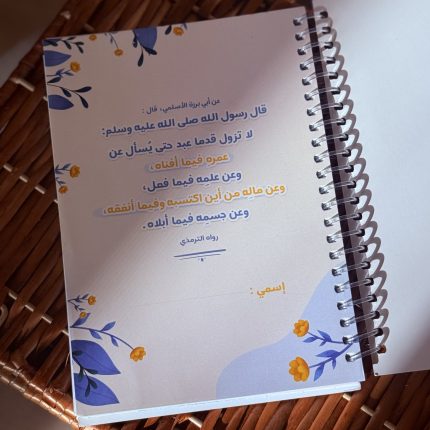 عن أبي برزة الأسلمي، قال :
قال رسول الله صلى الله عليه وسلم:
لا تزول قدما عبد حتى يُسأل عن
عمره فيما أفناه،
وعن علمِه فيما فعل،
وعن مالِه من أين اكتسبه وفيما أنفقه،
وعن جسمِه فيما أبلاه.
رواه الترمذي
إسمي :